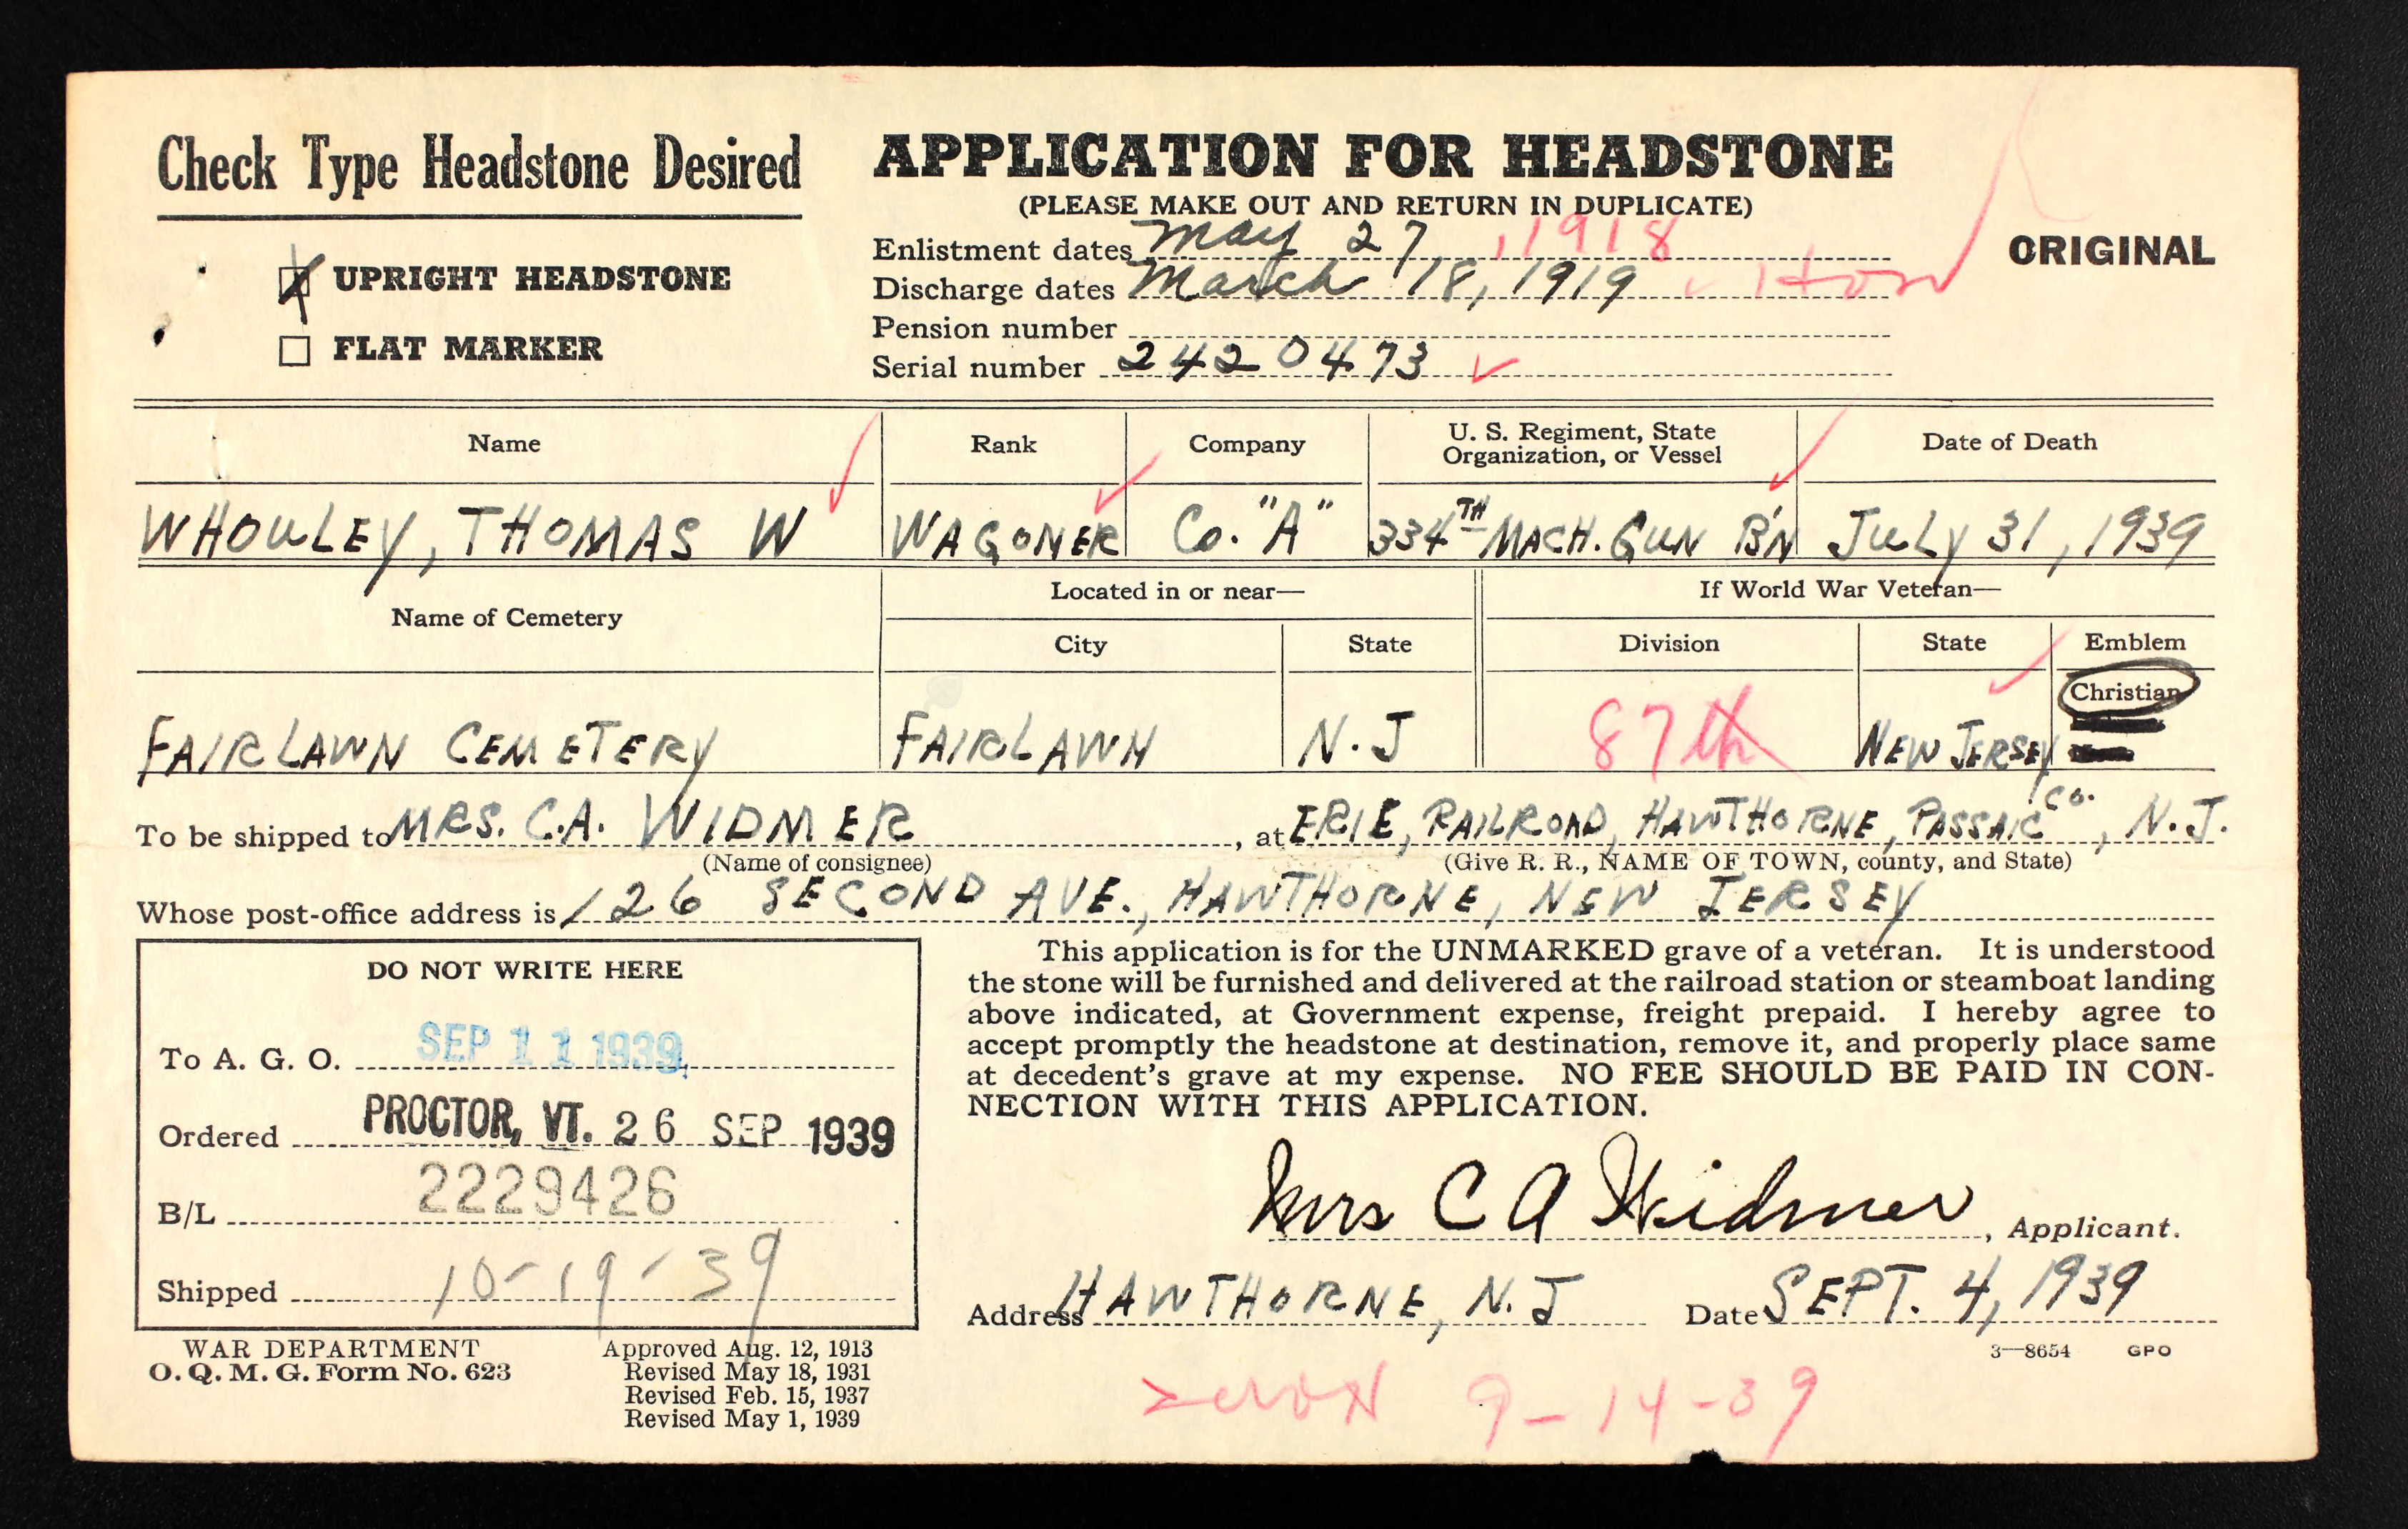 Check Type Headstone Desired
UPRIGHT HEADSTONE
FLAT MARKER
APPLICATION FOR HEADSTONE
(PLEASE MAKE OUT AND RETURN IN DUPLICATE)
ORIGINAL
Enlistment dates May 27, 1918
Discharge dates March 18, 1919 Hon
Pension number
Serial number 2420473
Name Rank Company U. S. Regiment, State Organization, or Vessel Date of Death
WHOULEY, THOMAS W WAGONER Co. "A" 334TH MACH. GUN B'N JULY 31, 1939
Name of Cemetery Located in or near— If World War Veteran—
City State Division State Emblem
Christian
FAIRLAWN CEMETERY FAIRLAWN N.J 87th NEW JERSEY
To be shipped to MRS. C.A. WIDMER, at ERIE, RAILROAD, HAWTHORNE, PASSAIC CO., N.J.
(Name of consignee) (Give R. R., NAME OF TOWN, county, and State)
Whose post-office address is 126 SECOND AVE., HAWTHORNE, NEW JERSEY
DO NOT WRITE HERE
To A. G. O. SEP 11 1939
Ordered PROCTOR, VT. 26 SEP 1939
B/L 2229426
Shipped 10-19-39
This application is for the UNMARKED grave of a veteran. It is understood
the stone will be furnished and delivered at the railroad station or steamboat landing
above indicated, at Government expense, freight prepaid. I hereby agree to
accept promptly the headstone at destination, remove it, and properly place same
at decedent's grave at my expense. NO FEE SHOULD BE PAID IN CON-
NECTION WITH THIS APPLICATION.
Mrs C A Widmer, Applicant.
Address HAWTHORNE, N.J Date SEPT. 4, 1939
3—8654 GPO
WAR DEPARTMENT
O. Q. M. G. Form No. 623
Approved Aug. 12, 1913
Revised May 18, 1931
Revised Feb. 15, 1937
Revised May 1, 1939
9-14-39